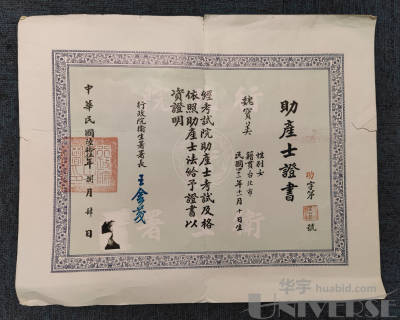 助產士證書
助字第 號
魏寶美
性別女
籍貫台北市
民國 年十一月十日生
經考試院助產士考試及格
依照助產士法給予證書以
資證明
行政院衛生署署長
王金茂
中華民國陸拾伍年捌月 日
华宇
huabid.com
UNIVERSE